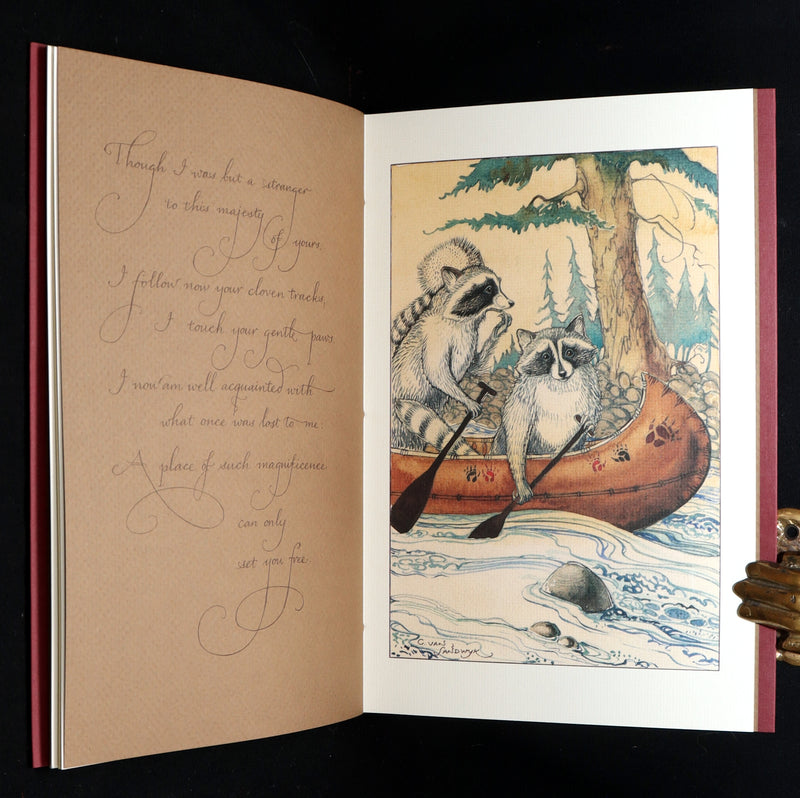 Though I was but a stranger
to this majesty
of yours.
I follow now your cloven tracks,
I touch your gentle paws
I now am well acquainted with
what once was lost to me:
A place of such magnificence
can only
set you free.
C. VAN
SANDWYK